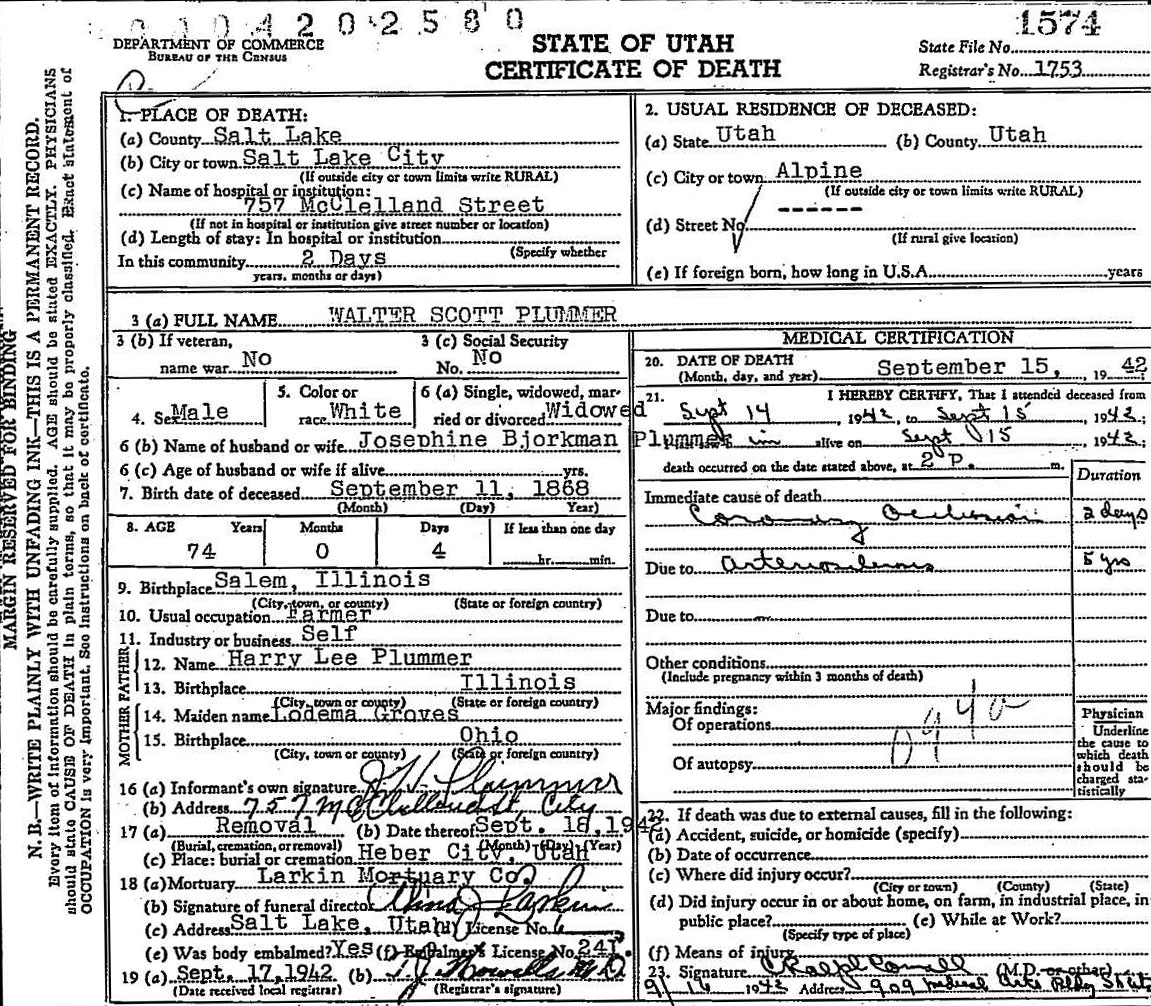 0 1 0 4 2 0 2 5 8 0
1574
DEPARTMENT OF COMMERCE
BUREAU OF THE CENSUS
STATE OF UTAH
CERTIFICATE OF DEATH
State File No.
Registrar's No. 1753
MARGIN RESERVED FOR BINDING
N. B.—WRITE PLAINLY WITH UNFADING INK—THIS IS A PERMANENT RECORD.
Every item of information should be carefully supplied. AGE should be stated EXACTLY. PHYSICIANS
should state CAUSE OF DEATH in plain terms, so that it may be properly classified. Exact statement of
OCCUPATION is very important. See instructions on back of certificate.
1. PLACE OF DEATH:
(a) County Salt Lake
(b) City or town Salt Lake City
(If outside city or town limits write RURAL)
(c) Name of hospital or institution:
757 McClelland Street
(If not in hospital or institution give street number or location)
(d) Length of stay: In hospital or institution
(Specify whether
In this community 2 Days
years, months or days)
2. USUAL RESIDENCE OF DECEASED:
(a) State Utah (b) County Utah
(c) City or town Alpine
(If outside city or town limits write RURAL)
(d) Street No. -------
(If rural give location)
(e) If foreign born, how long in U.S.A. years
3 (a) FULL NAME WALTER SCOTT PLUMMER
3 (b) If veteran, 3 (c) Social Security
name war No No. No
4. Sex Male 5. Color or race White 6 (a) Single, widowed, married or divorced Widowed
6 (b) Name of husband or wife Josephine Bjorkman Plummer
6 (c) Age of husband or wife if alive yrs.
7. Birth date of deceased September 11, 1868
(Month) (Day) Year)
8. AGE Years Months Days If less than one day
74 0 4 hr. min.
9. Birthplace Salem, Illinois
(City, town, or county) (State or foreign country)
10. Usual occupation Farmer
11. Industry or business Self
FATHER
12. Name Harry Lee Plummer
13. Birthplace Illinois
(City, town or county) (State or foreign country)
MOTHER
14. Maiden name Lodema Groves
15. Birthplace Ohio
(City, town or county) (State or foreign country)
16 (a) Informant's own signature Plummer
(b) Address 757 McClelland St. City
17 (a) Removal (b) Date thereof Sept. 18, 1942
(Burial, cremation, or removal) (Month) (Day) (Year)
(c) Place: burial or cremation Heber City, Utah
18 (a) Mortuary Larkin Mortuary Co.
(b) Signature of funeral director Larkin
(c) Address Salt Lake, Utah (d) License No.
(e) Was body embalmed? Yes (f) Embalmer's License No. 241.
19 (a) Sept. 17, 1942 (b)
(Date received local registrar) (Registrar's signature)
MEDICAL CERTIFICATION
20. DATE OF DEATH
(Month, day, and year) September 15, 19 42
21. I HEREBY CERTIFY, That I attended deceased from
Sept 14, 1942, to Sept 15, 1942;
alive on Sept 15, 1942;
death occurred on the date stated above, at 2 P. m.
Duration
Immediate cause of death
Coronary Occlusion 2 days
Due to Arteriosclerosis 5 yrs
Due to
Other conditions
(Include pregnancy within 3 months of death)
Major findings:
Of operations
Of autopsy
Physician
Underline
the cause to
which death
should be
charged sta-
tistically
22. If death was due to external causes, fill in the following:
(a) Accident, suicide, or homicide (specify)
(b) Date of occurrence
(c) Where did injury occur?
(City or town) (County) (State)
(d) Did injury occur in or about home, on farm, in industrial place, in
public place? (e) While at Work?
(Specify type of place)
(f) Means of injury
23. Signature (M.D. or other)
9/16 1942 Address 909 Medical Arts Bldg